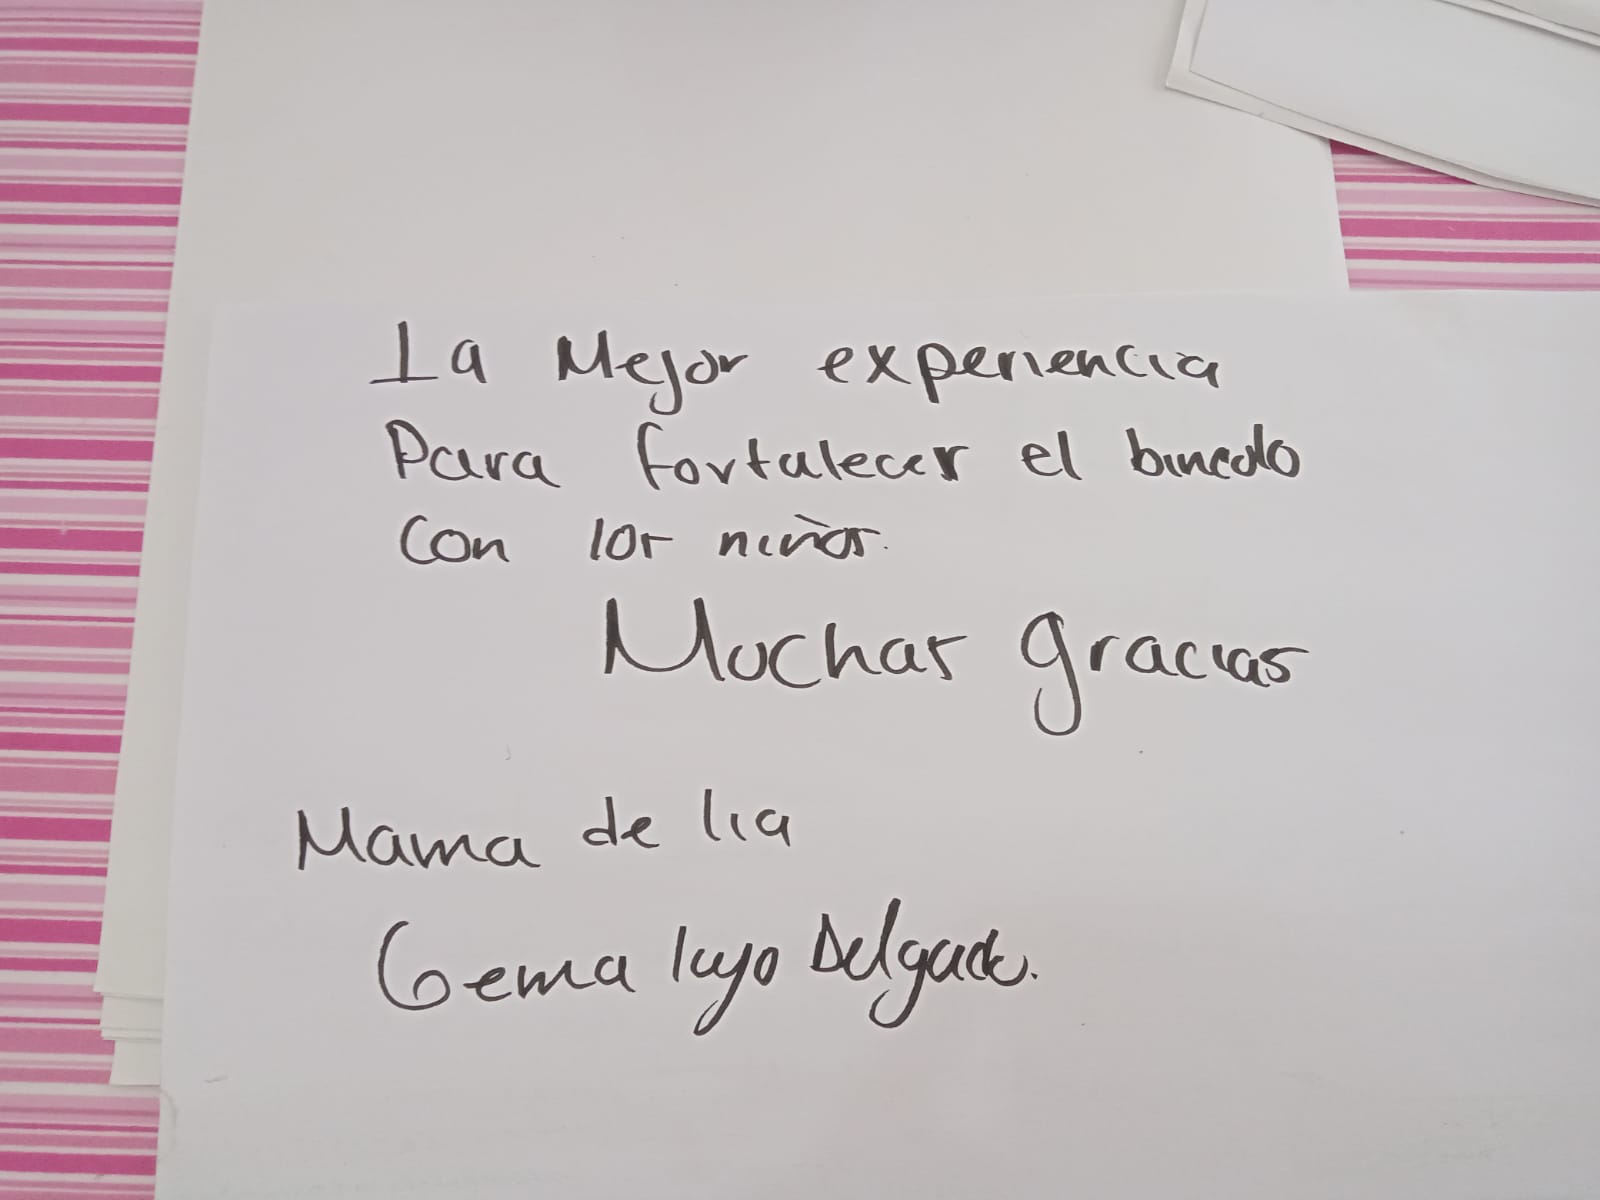 La Mejor experiencia
Para fortalecer el bincolo
con los niños.
Muchas gracias
Mama de lia
Gema luyo Delgado.